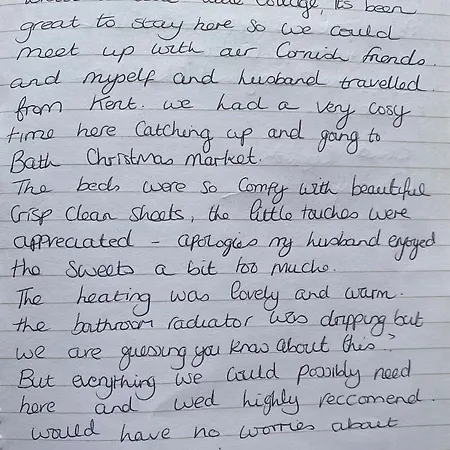 little cottage, its been
great to stay here so we could
meet up with our Cornish friends.
and myself and husband travelled
from Kent. we had a very cosy
time here Catching up and going to
Bath Christmas market.
The beds were so Comfy with beautiful
Crisp Clean sheets, the little touches were
appreciated - apologies my husband enjoyed
the sweets a bit too much.
The heating was lovely and warm.
the bathroom radiator was dripping but
we are guessing you know about this?
But everything we could possibly need
here and wed highly reccomend.
would have no worries about